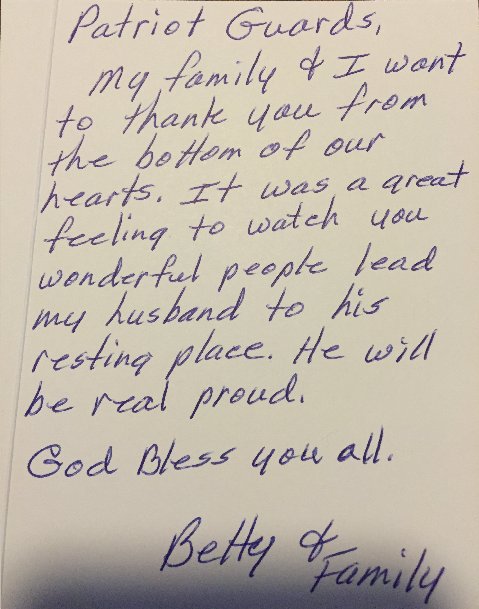 Patriot Guards,
My family & I want
to thank you from
the bottom of our
hearts. It was a great
feeling to watch you
wonderful people lead
my husband to his
resting place. He will
be real proud.
God Bless you all.
Betty &
Family